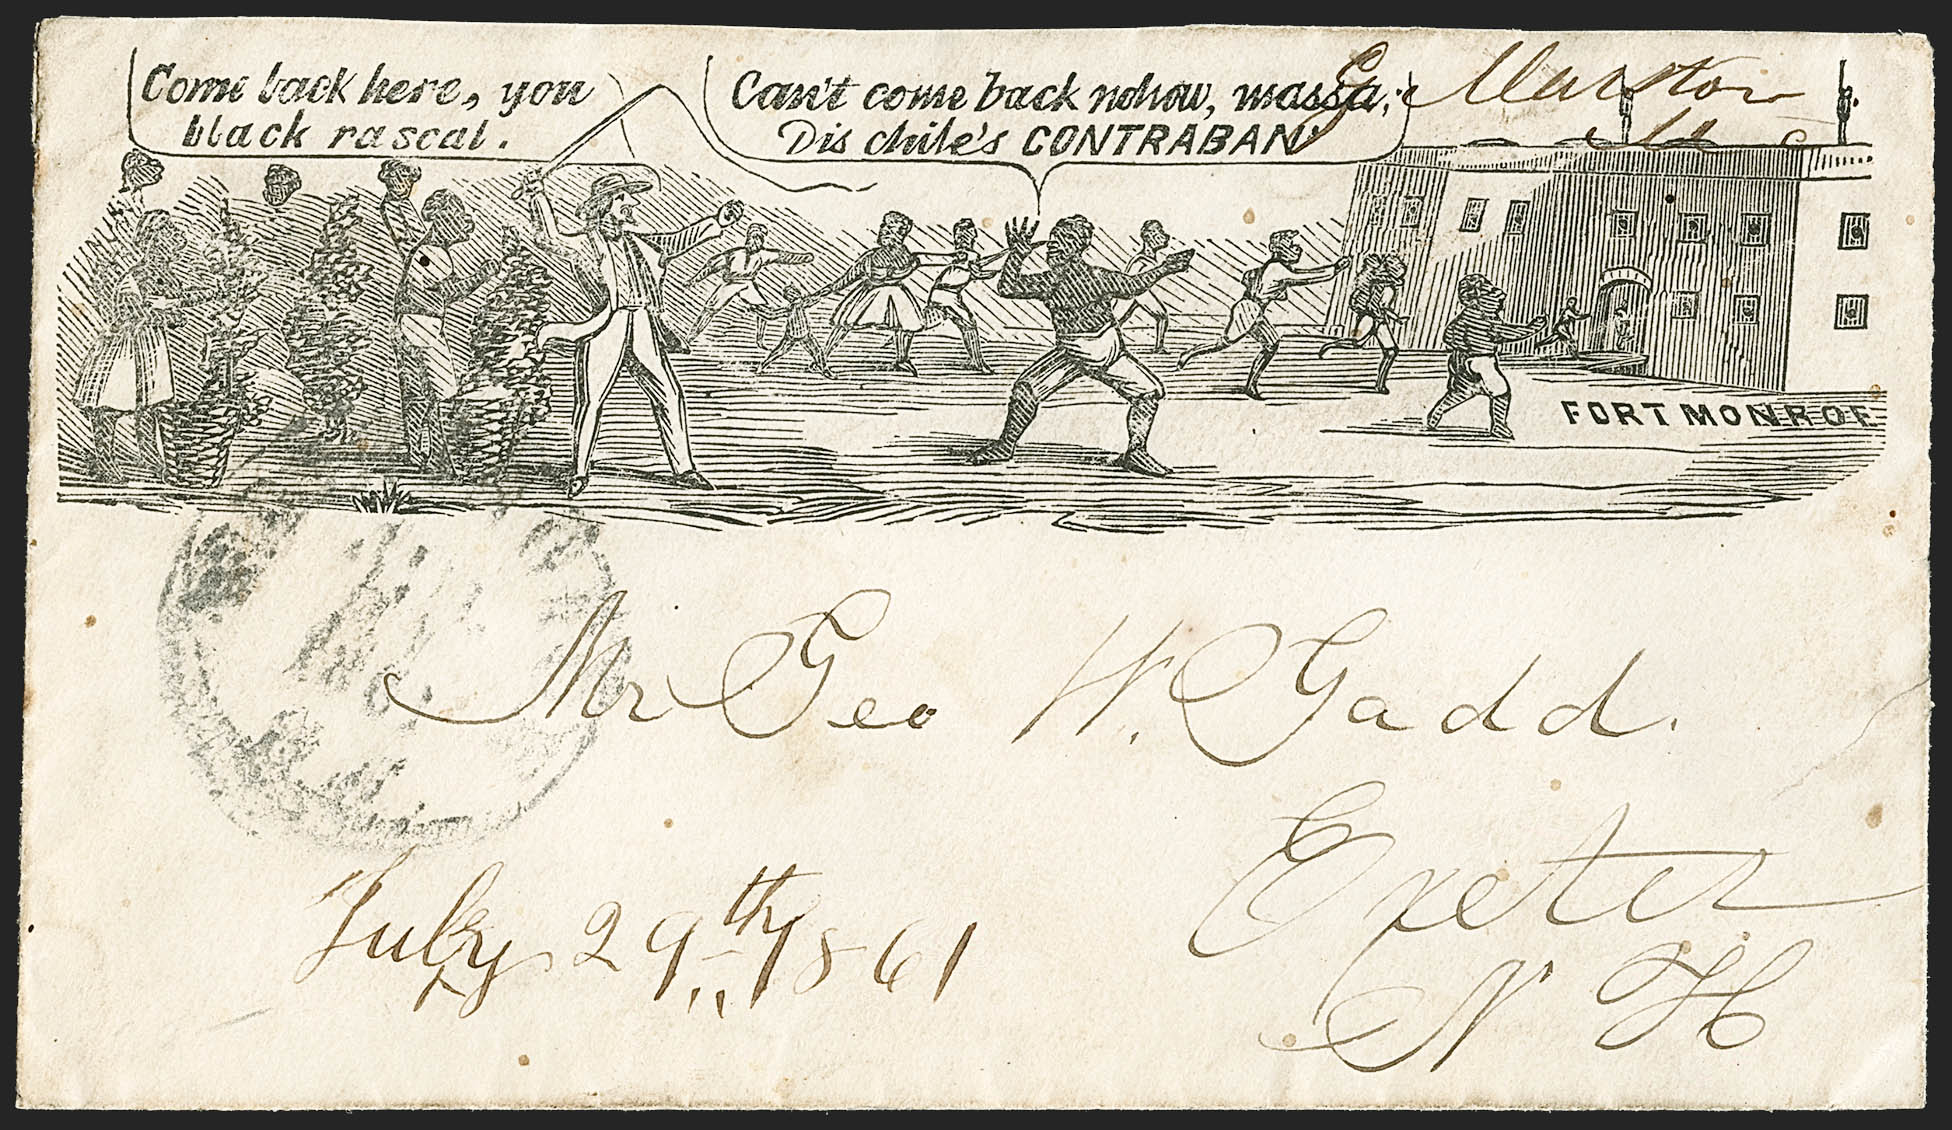 Come back here, you
black rascal.
Can't come back nohow, massa;
Dis chile's CONTRABAN'
G Marston
FORT MONROE
Mr Geo W. Gadd.
Exeter
N H
July 29th 1861